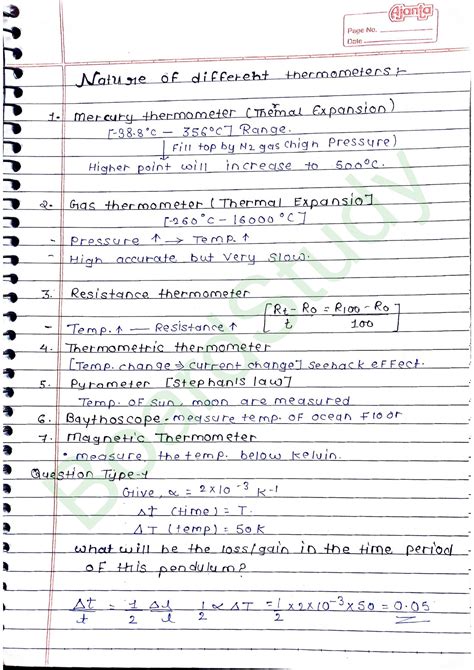 Ajanta
Page No.
Date
Nature of different thermometers:-
1. Mercury thermometer (Thermal Expansion)
[-38.8°C - 356°C] Range.
Fill top by N2 gas (high Pressure)
Higher point will increase to 500°C.
2. Gas thermometer [Thermal Expansio]
[-260°C - 16000°C]
- Pressure ↑ → Temp. ↑
- High accurate but very slow.
3. Resistance thermometer
- Temp. ↑ — Resistance ↑ [Rt - R0 / t = R100 - R0 / 100]
4. Thermometric thermometer
[Temp. change → current change] seeback effect.
5. Pyrameter [Stephanis law]
Temp. of sun, moon are measured
6. Baythoscope - measure temp. of ocean floor
7. Magnetic Thermometer
• measure, the temp. below kelvin.
Question Type-1
Give, α = 2×10⁻³ K⁻¹
Δt (time) = T.
ΔT (temp) = 50K
what will be the loss/gain in the time period
of this pendulum?
Δt/t = 1/2 Δl/l 1/2 α ΔT = 1/2 × 2×10⁻³×50 = 0.05
BoardStudy